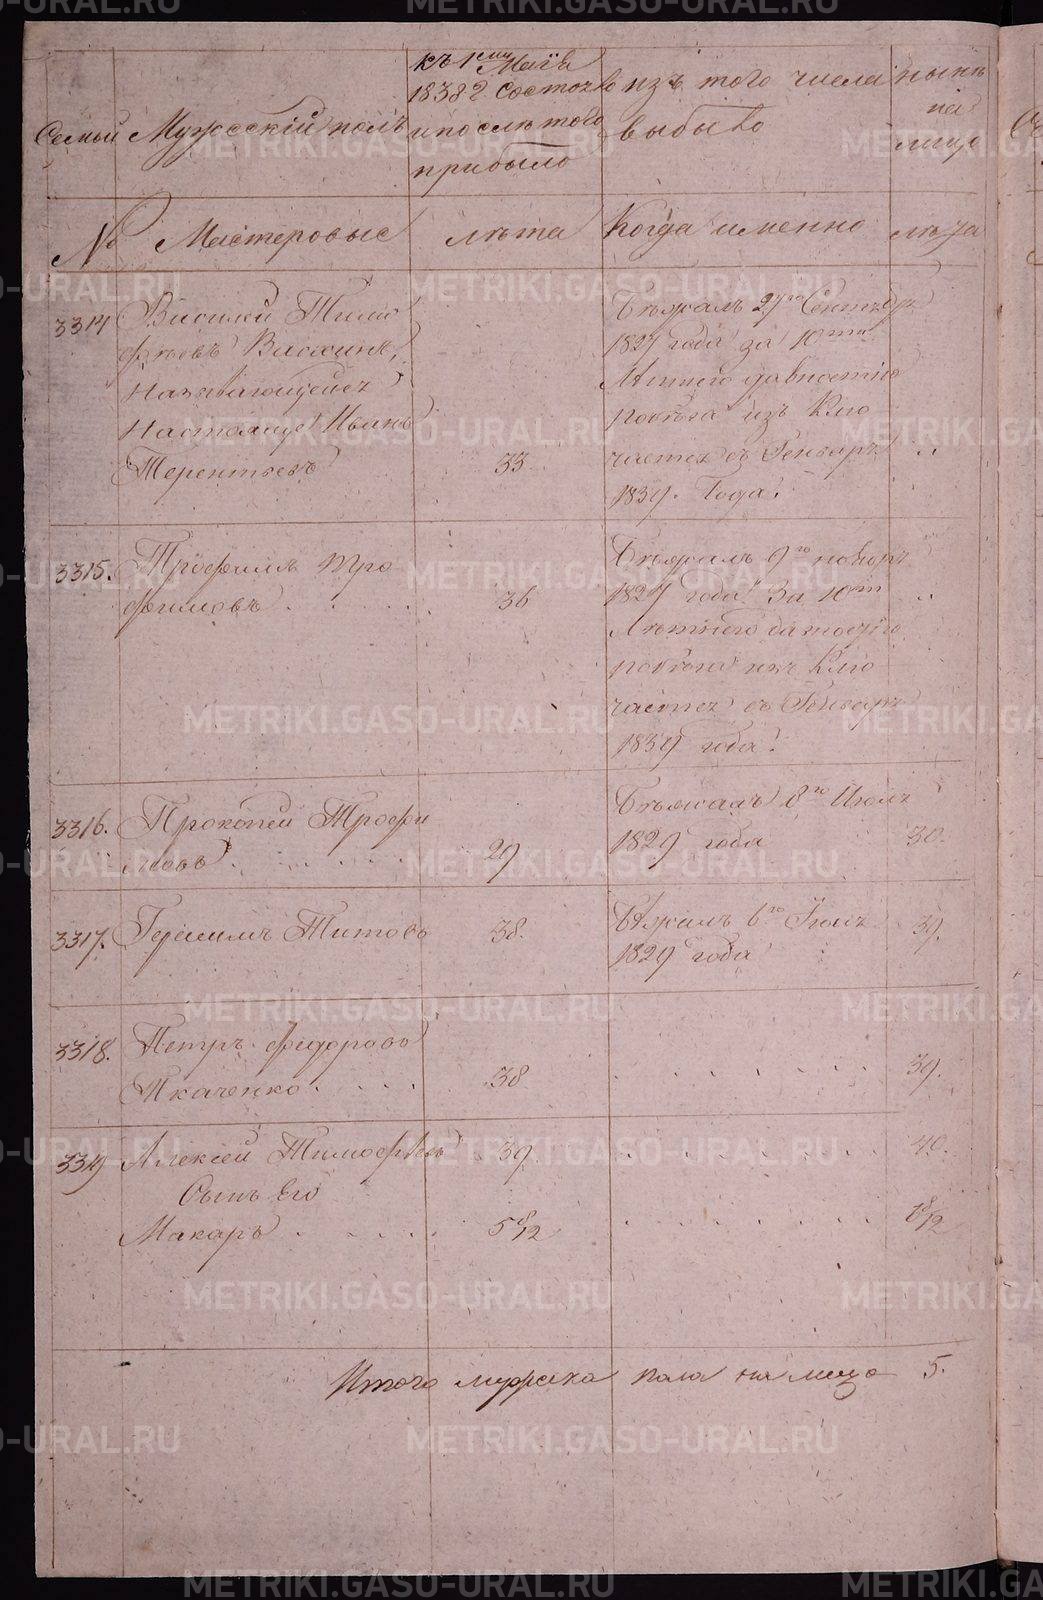 METRIKI.GASO-URAL.RU
Семьи
Мужескiй полъ
къ 1му Маiя
1838 г состояло
и послѣ того
прибыло
изъ того числа
выбыло
нынѣ
на
лицо
№
Мастеровые
лѣта
Когда именно
лѣта
3314
Василей Тимо
фѣевъ
Называющейся
Настояще Иванъ
Терентьевъ
33
Бѣжалъ 27го Сентябр
1827 года за 10ти
лѣтнею давностiю
побѣга изъ Клю
чается въ Генварѣ
1839. Года.
3315.
Трофимъ Тро
фимовъ
36
Бѣжалъ 9го ноябрѣ
1827 года За 10ти
Лѣтнею
побѣга изъ Клю
чается въ Генварѣ
1839 года.
3316.
Прокопей Трофи
мовъ
29
Бѣжалъ 8го Июля
1829 года
30.
3317.
Герасимъ Титовъ
38.
Бѣжалъ 6го Июля
1829 года
39.
3318.
Петръ Федоровъ
Ткаченко
38
39.
3319
Алексѣй Тимофѣевъ
39.
40.
Сынъ Его
Макаръ
5 8/12
Итого мужска пола на лицо 5.
METRIKI.GASO-URAL.RU